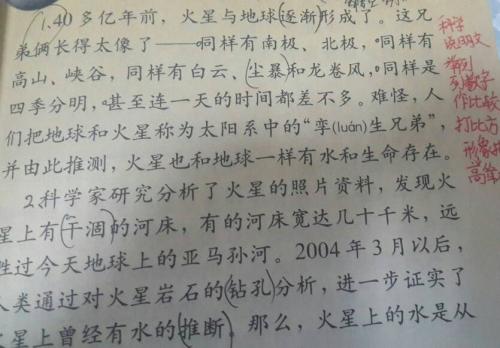 1.40多亿年前，火星与地球逐渐形成了。这兄
弟俩长得太像了——同样有南极、北极，同样有
高山、峡谷，同样有白云、尘暴和龙卷风，同样是
四季分明，甚至连一天的时间都差不多。难怪，人
们把地球和火星称为太阳系中的“孪(luán)生兄弟”，
并由此推测，火星也和地球一样有水和生命存在。
2.科学家研究分析了火星的照片资料，发现火
星上有干涸的河床，有的河床宽达几十千米，远
胜过今天地球上的亚马孙河。2004年3月以后，
人类通过对火星岩石的钻孔分析，进一步证实了
火星上曾经有水的推断。那么，火星上的水是从
科学
说明文
举例
列数字
作比较
打比方
形象